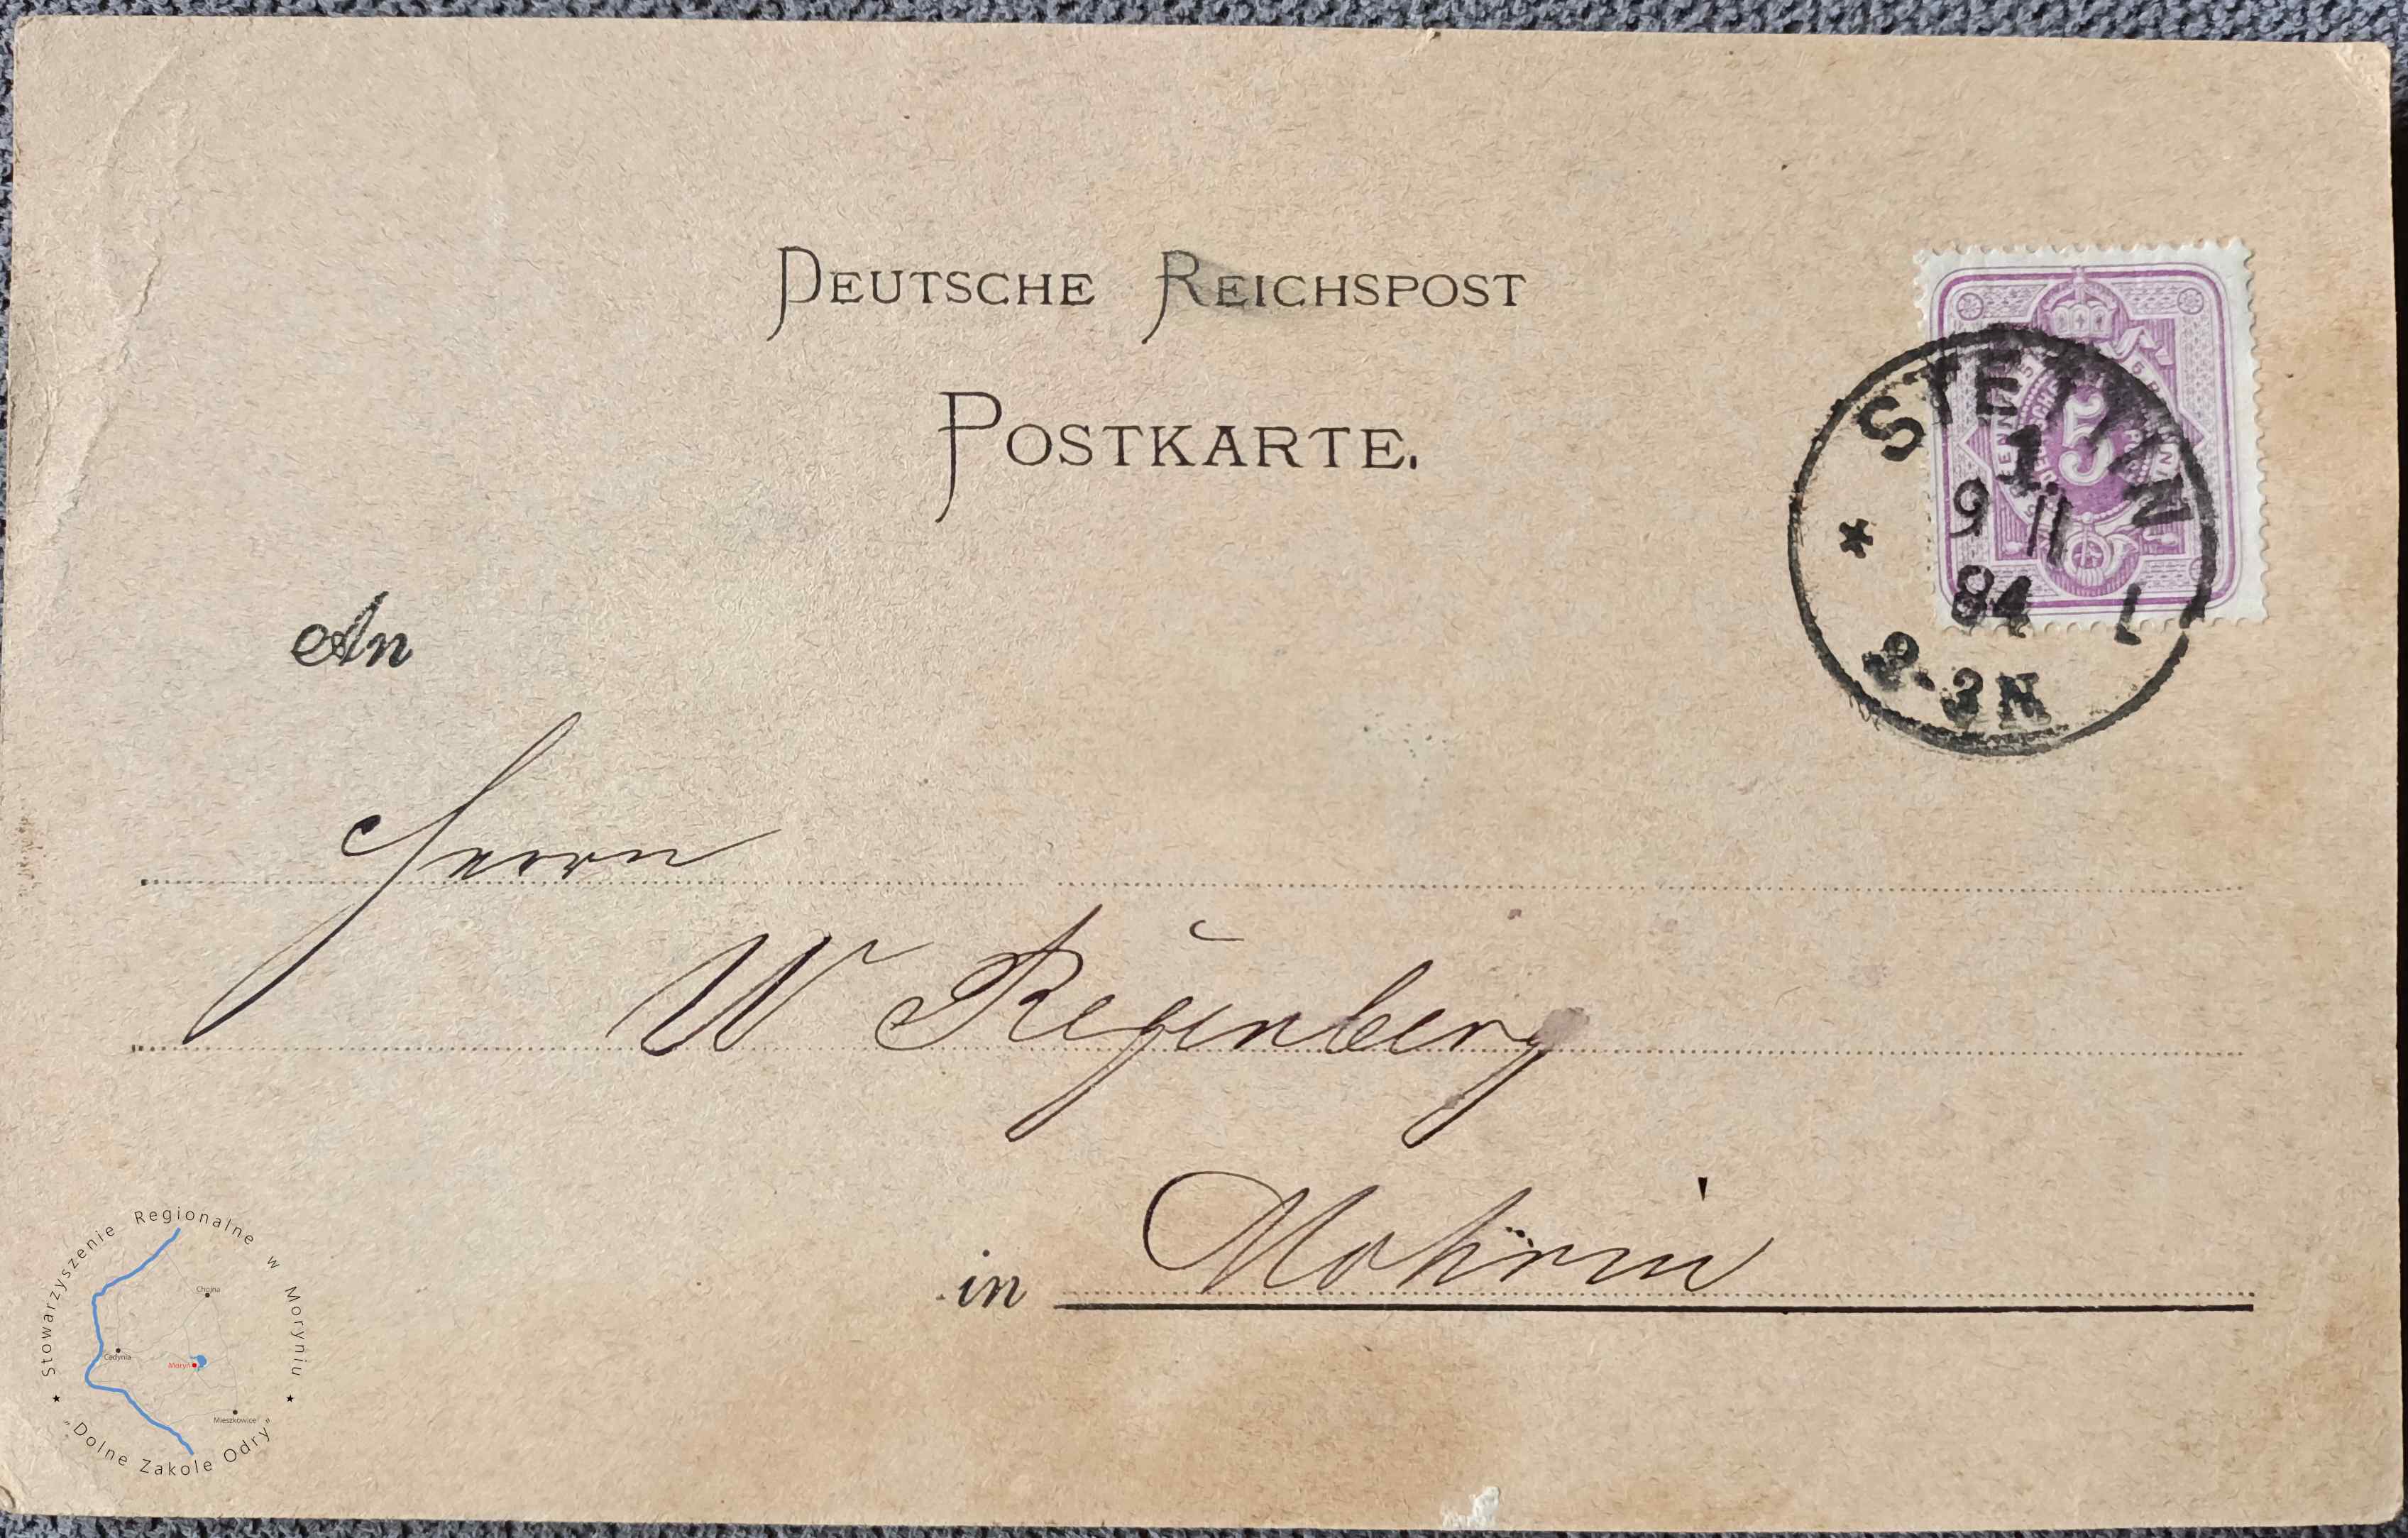 DEUTSCHE REICHSPOST
POSTKARTE.
STETTIN
1.
9 11
84
* 1
2-3N
5
An
Herrn
W Regenberg
in Mohrin
Stowarzyszenie Regionalne w Moryniu
Chojna
Cedynia
Moryń
Mieszkowice
"Dolne Zakole Odry"